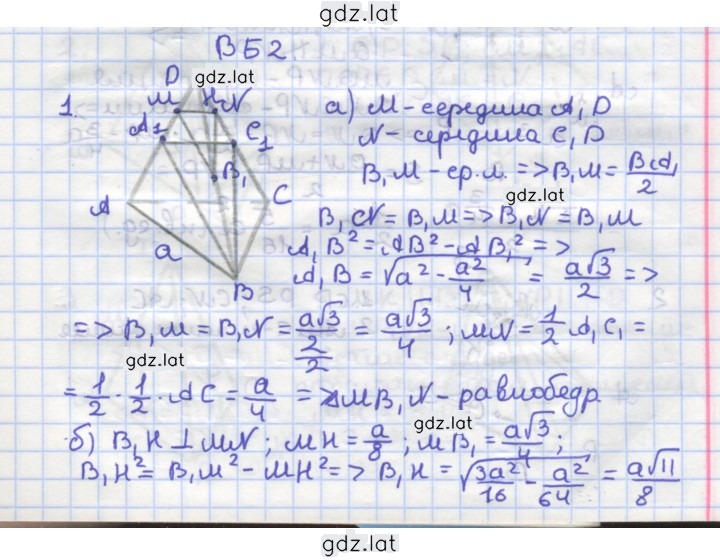 gdz.lat
В Б 2
gdz.lat
1.
D
M H N
A₁ C₁
B₁
A C
a
B
а) M - середина A₁D
N - середина C₁D
B₁M - ср. л. => B₁M = BA₁/2
gdz.lat
B₁N = B₁M => B₁N = B₁M
A₁B² = AB² - AB₁² =>
A₁B = √(a² - a²/4) = a√3/2 =>
gdz.lat
=> B₁M = B₁N = (a√3/2)/2 = a√3/4 ; MN = 1/2 A₁C₁ =
= 1/2 · 1/2 · AC = a/4 => △MB₁N - равнобедр
gdz.lat
б) B₁H ⊥ MN ; MH = a/8 ; MB₁ = a√3/4 ;
B₁H² = B₁M² - MH² => B₁H = √(3a²/16 - a²/64) = a√11/8
gdz.lat
gdz.lat